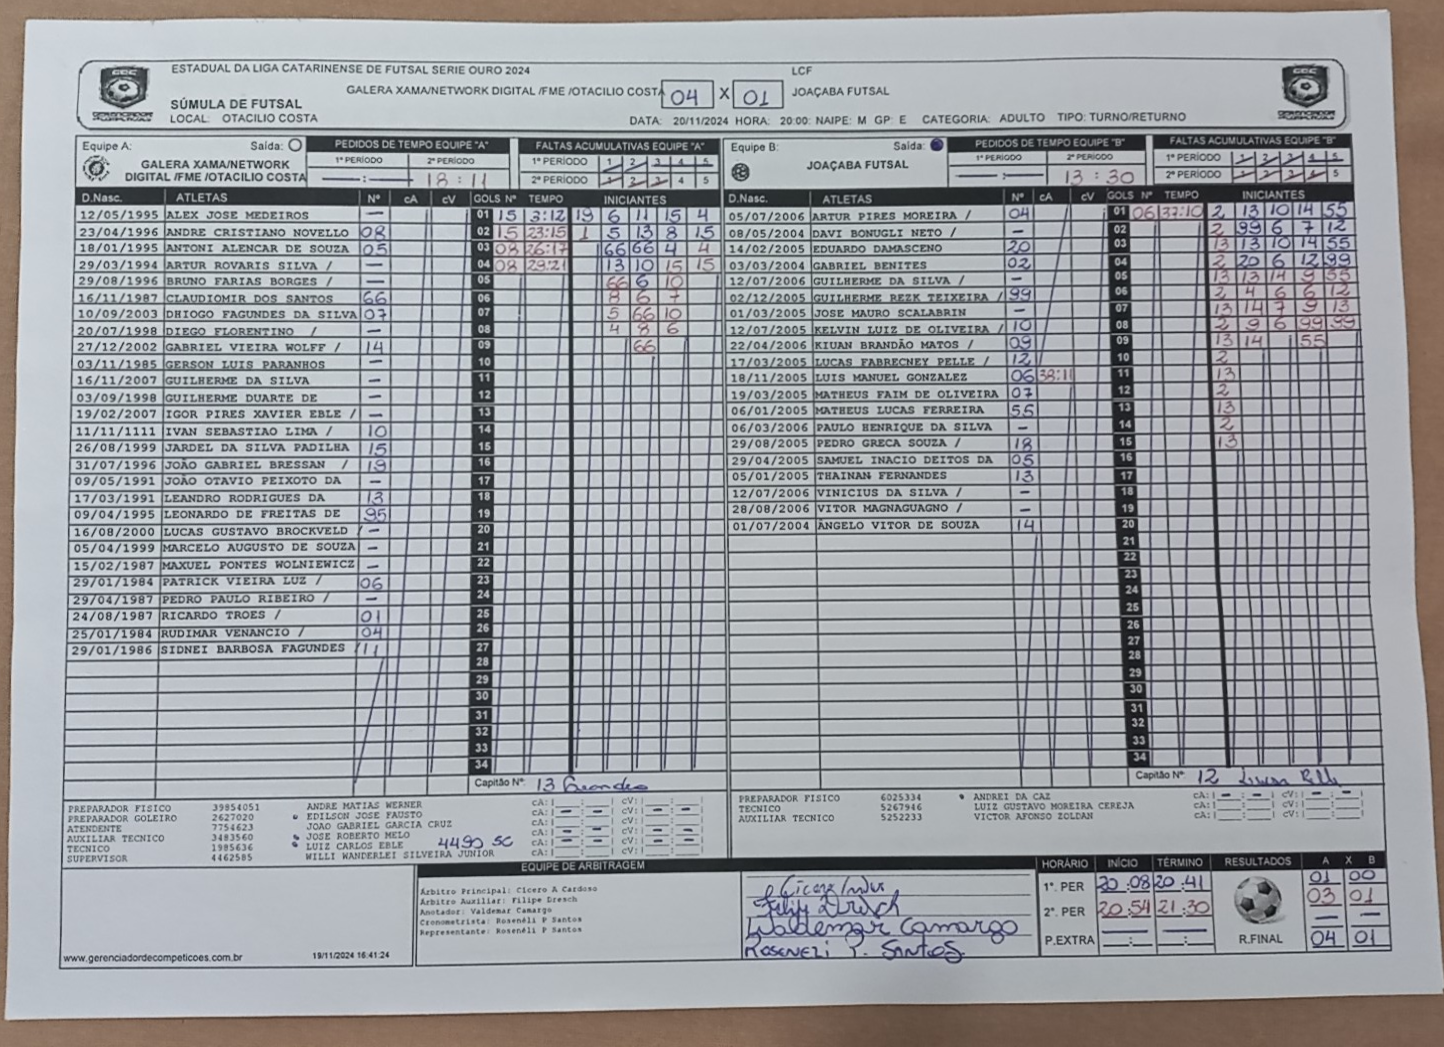 ESTADUAL DA LIGA CATARINENSE DE FUTSAL SERIE OURO 2024 LCF
GALERA XAMA/NETWORK DIGITAL /FME /OTACILIO COSTA 04 X 01 JOAÇABA FUTSAL
SÚMULA DE FUTSAL
LOCAL: OTACILIO COSTA DATA: 20/11/2024 HORA: 20:00 NAIPE: M GP: E CATEGORIA: ADULTO TIPO: TURNO/RETURNO
Equipe A: Saída:
GALERA XAMA/NETWORK
DIGITAL /FME /OTACILIO COSTA
PEDIDOS DE TEMPO EQUIPE "A"
1º PERÍODO 2º PERÍODO
18:11
FALTAS ACUMULATIVAS EQUIPE "A"
1º PERÍODO 1 2 3 4 5
2º PERÍODO 1 2 3 4 5
D.Nasc. ATLETAS Nº cA cV GOLS Nº TEMPO INICIANTES
12/05/1995 ALEX JOSE MEDEIROS — 01 15 3:12 19 6 11 15 4
23/04/1996 ANDRE CRISTIANO NOVELLO 08 02 15 23:15 1 5 13 8 15
18/01/1995 ANTONI ALENCAR DE SOUZA 05 03 08 26:17 66 66 4 4
29/03/1994 ARTUR ROVARIS SILVA / — 04 08 29:21 13 10 15 15
29/08/1996 BRUNO FARIAS BORGES / — 05 66 6 10
16/11/1987 CLAUDIOMIR DOS SANTOS 66 06 8 6 7
10/09/2003 DHIOGO FAGUNDES DA SILVA 07 07 5 66 10
20/07/1998 DIEGO FLORENTINO / — 08 4 8 6
27/12/2002 GABRIEL VIEIRA WOLFF / 14 09 66
03/11/1985 GERSON LUIS PARANHOS — 10
16/11/2007 GUILHERME DA SILVA — 11
03/09/1998 GUILHERME DUARTE DE — 12
19/02/2007 IGOR PIRES XAVIER EBLE / — 13
11/11/1111 IVAN SEBASTIAO LIMA / 10 14
26/08/1999 JARDEL DA SILVA PADILHA 15 15
31/07/1996 JOÃO GABRIEL BRESSAN / 19 16
09/05/1991 JOÃO OTAVIO PEIXOTO DA — 17
17/03/1991 LEANDRO RODRIGUES DA 13 18
09/04/1995 LEONARDO DE FREITAS DE 95 19
16/08/2000 LUCAS GUSTAVO BROCKVELD / — 20
05/04/1999 MARCELO AUGUSTO DE SOUZA — 21
15/02/1987 MAXUEL PONTES WOLNIEWICZ — 22
29/01/1984 PATRICK VIEIRA LUZ / 06 23
29/04/1987 PEDRO PAULO RIBEIRO / — 24
24/08/1987 RICARDO TROES / 01 25
25/01/1984 RUDIMAR VENANCIO / 04 26
29/01/1986 SIDNEI BARBOSA FAGUNDES / 11 27
28
29
30
31
32
33
34
Capitão Nº 13
PREPARADOR FISICO 39854051 ANDRE MATIAS WERNER
PREPARADOR GOLEIRO 2627020 EDILSON JOSE FAUSTO
ATENDENTE 7754623 JOAO GABRIEL GARCIA CRUZ
AUXILIAR TECNICO 3483560 JOSE ROBERTO MELO
TECNICO 1985636 LUIZ CARLOS EBLE 4490 SC
SUPERVISOR 4462585 WILLI WANDERLEI SILVEIRA JUNIOR
cA: cV:
cA: cV:
cA: cV:
cA: cV:
cA: cV:
cA: cV:
Equipe B: Saída:
JOAÇABA FUTSAL
PEDIDOS DE TEMPO EQUIPE "B"
1º PERÍODO 2º PERÍODO
13:30
FALTAS ACUMULATIVAS EQUIPE "B"
1º PERÍODO 1 2 3 4 5
2º PERÍODO 1 2 3 4 5
D.Nasc. ATLETAS Nº cA cV GOLS Nº TEMPO INICIANTES
05/07/2006 ARTUR PIRES MOREIRA / 04 01 06 37:10 2 13 10 14 55
08/05/2004 DAVI BONUGLI NETO / — 02 2 99 6 7 12
14/02/2005 EDUARDO DAMASCENO 20 03 13 13 10 14 55
03/03/2004 GABRIEL BENITES 02 04 2 20 6 12 99
12/07/2006 GUILHERME DA SILVA / — 05 13 13 14 9 55
02/12/2005 GUILHERME REZK TEIXEIRA / 99 06 2 4 6 6 12
01/03/2005 JOSE MAURO SCALABRIN — 07 13 14 7 9 13
12/07/2005 KELVIN LUIZ DE OLIVEIRA / 10 08 2 9 6 99 99
22/04/2006 KIUAN BRANDÃO MATOS / 09 09 13 14 55
17/03/2005 LUCAS FABRECNEY PELLE / 12 10 2
18/11/2005 LUIS MANUEL GONZALEZ 06 38:11 11 13
19/03/2005 MATHEUS FAIM DE OLIVEIRA 07 12 2
06/01/2005 MATHEUS LUCAS FERREIRA 55 13 13
06/03/2006 PAULO HENRIQUE DA SILVA — 14 2
29/08/2005 PEDRO GRECA SOUZA / 18 15 13
29/04/2005 SAMUEL INACIO DEITOS DA 05 16
05/01/2005 THAINAN FERNANDES 13 17
12/07/2006 VINICIUS DA SILVA / — 18
28/08/2006 VITOR MAGNAGUAGNO / — 19
01/07/2004 ÂNGELO VITOR DE SOUZA 14 20
21
22
23
24
25
26
27
28
29
30
31
32
33
34
Capitão Nº 12
PREPARADOR FISICO 6025334 ANDREI DA CAZ
TECNICO 5267946 LUIZ GUSTAVO MOREIRA CEREJA
AUXILIAR TECNICO 5252233 VICTOR AFONSO ZOLDAN
cA: cV:
cA: cV:
cA: cV:
EQUIPE DE ARBITRAGEM
Árbitro Principal: Cicero A Cardoso
Árbitro Auxiliar: Filipe Dresch
Anotador: Valdemar Camargo
Cronometrista: Rosenéli P Santos
Representante: Rosenéli P Santos
Filipe Dresch
Waldemar Camargo
ROSENELI P. SANTOS
HORÁRIO INÍCIO TÉRMINO RESULTADOS A X B
1º. PER 20:08 20:41 01 00
2º. PER 20:54 21:30 03 01
P.EXTRA
R.FINAL 04 01
www.gerenciadordecompeticoes.com.br 19/11/2024 16:41:24